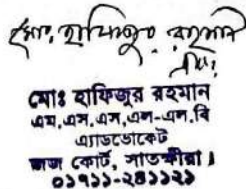 মোঃ হাফিজুর রহমান
এড:
মোঃ হাফিজুর রহমান
এম,এস,এস,এল-এল,বি
এ্যাডভোকেট
জজ কোর্ট, সাতক্ষীরা।
০১৭১১-২৪১১২১